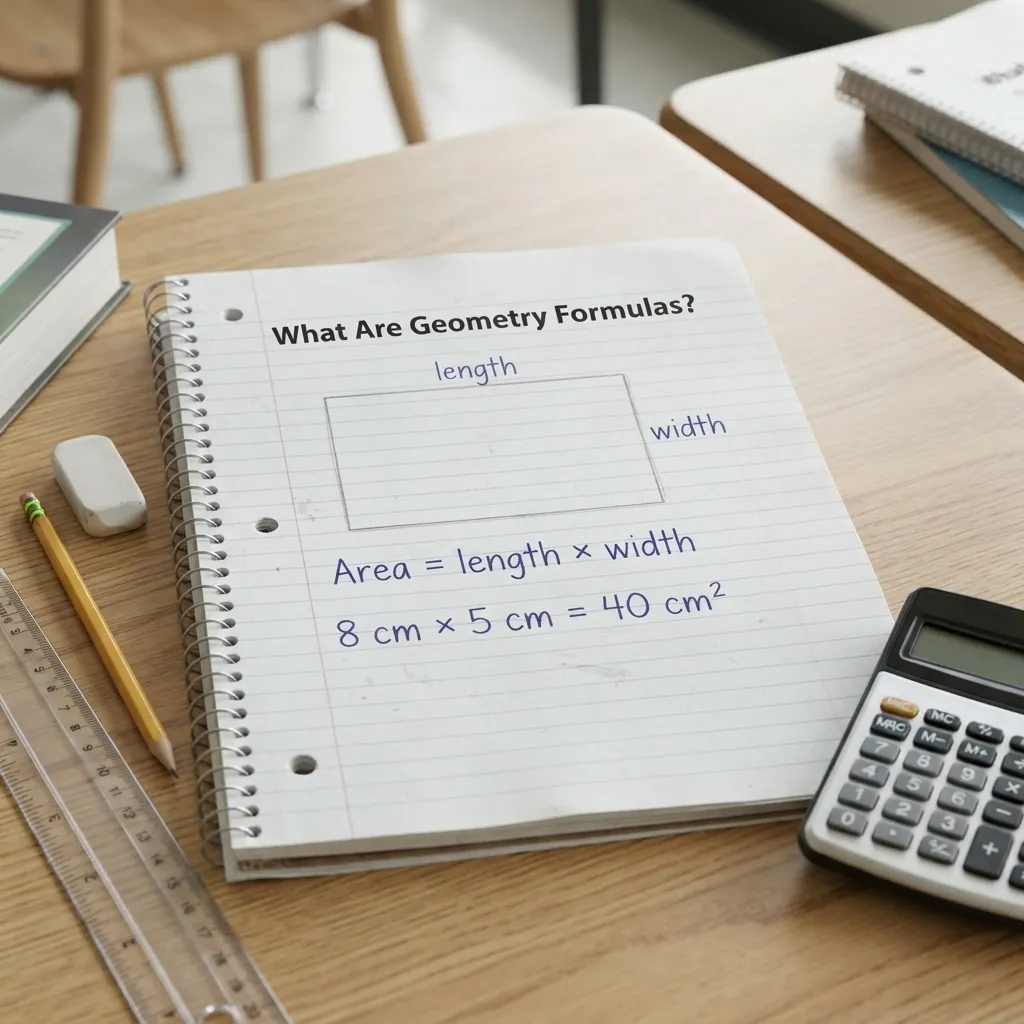 What Are Geometry Formulas?
length
width
Area = length × width
8 cm × 5 cm = 40 cm²
MRC
MC
M−
M+
7
8
9
4
5
6
×
1
2
3
−
0
+